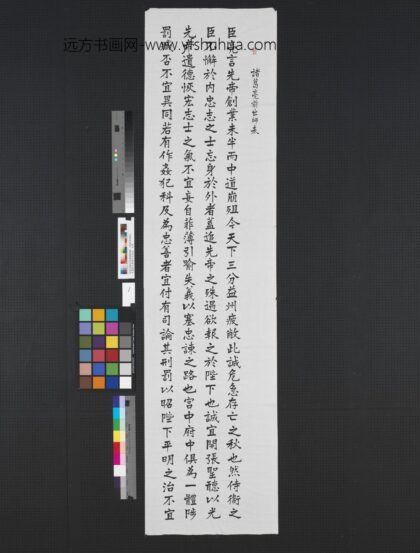 远方书画网-www.yfshuhua.com
諸葛亮前出師表
臣亮言先帝創業未半而中道崩殂今天下三分益州疲敝此誠危急存亡之秋也然侍衛之
臣不懈於內忠志之士忘身於外者蓋追先帝之殊遇欲報之於陛下也誠宜開張聖聽以光
先帝遺德恢宏志士之氣不宜妄自菲薄引喻失義以塞忠諫之路也宮中府中俱為一體陟
罰臧否不宜異同若有作姦犯科及為忠善者宜付有司論其刑罰以昭陛下平明之治不宜